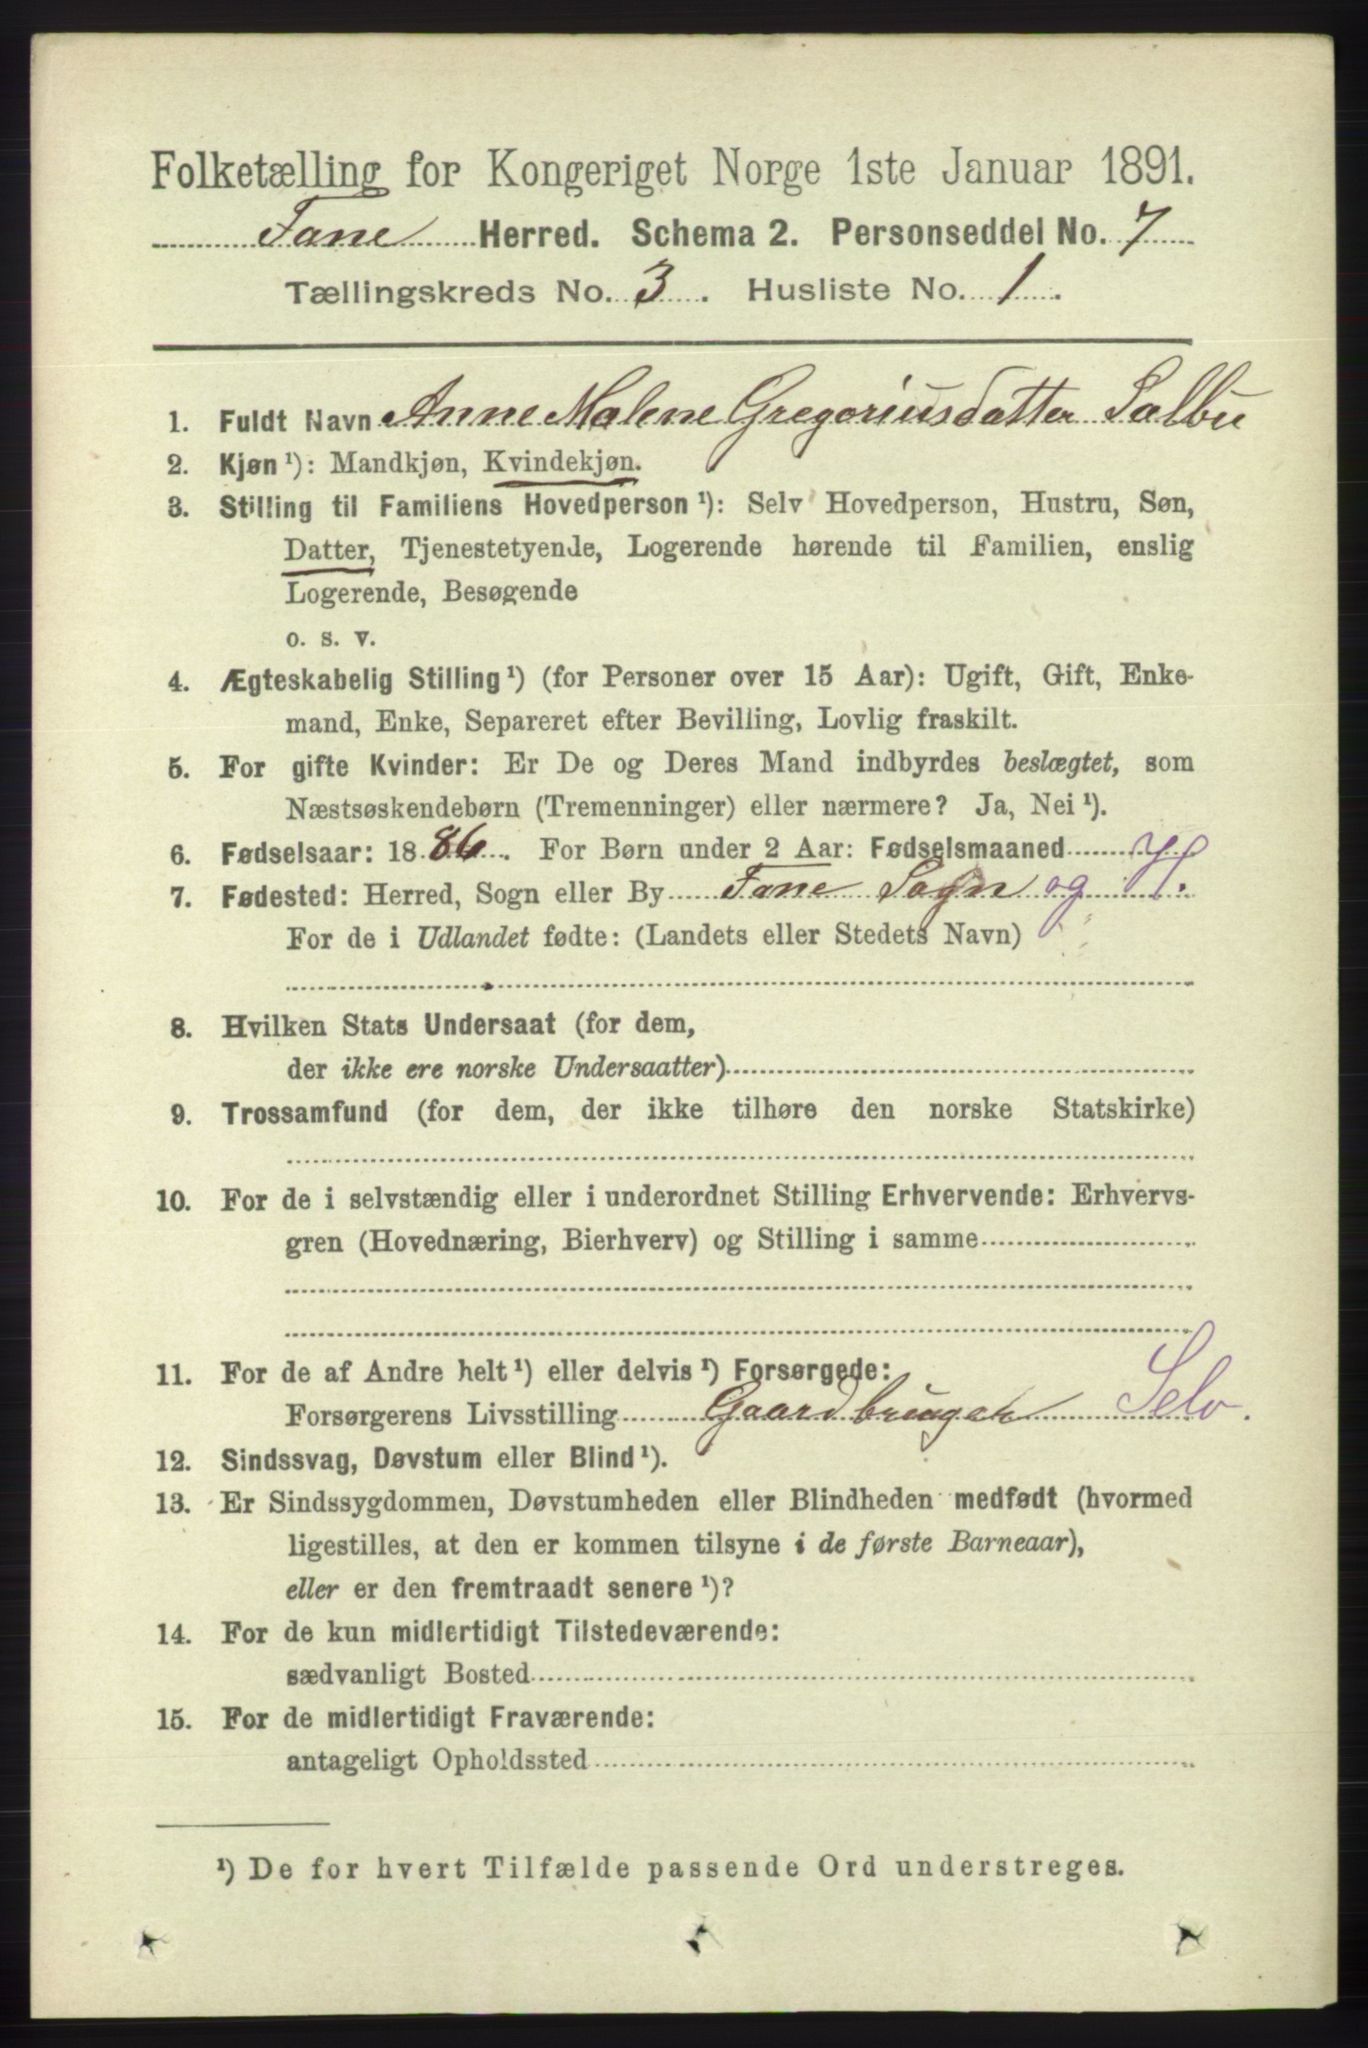 Folketælling for Kongeriget Norge 1ste Januar 1891.
Fane Herred. Schema 2. Personseddel No. 7
Tællingskreds No. 3. Husliste No. 1.
1. Fuldt Navn Anne Malene Gregoriusdatter Sælbu
2. Kjøn ¹): Mandkjøn, Kvindekjøn.
3. Stilling til Familiens Hovedperson ¹): Selv Hovedperson, Hustru, Søn,
Datter, Tjenestetyende, Logerende hørende til Familien, enslig
Logerende, Besøgende
o. s. v.
4. Ægteskabelig Stilling ¹) (for Personer over 15 Aar): Ugift, Gift, Enke-
mand, Enke, Separeret efter Bevilling, Lovlig fraskilt.
5. For gifte Kvinder: Er De og Deres Mand indbyrdes beslægtet, som
Næstsøskendebørn (Tremenninger) eller nærmere? Ja, Nei ¹).
6. Fødselsaar: 1886. For Børn under 2 Aar: Fødselsmaaned
7. Fødested: Herred, Sogn eller By Fane Sogn og H.
For de i Udlandet fødte: (Landets eller Stedets Navn)
8. Hvilken Stats Undersaat (for dem,
der ikke ere norske Undersaatter)
9. Trossamfund (for dem, der ikke tilhøre den norske Statskirke)
10. For de i selvstændig eller i underordnet Stilling Erhvervende: Erhvervs-
gren (Hovednæring, Bierhverv) og Stilling i samme
11. For de af Andre helt ¹) eller delvis ¹) Forsørgede:
Forsørgerens Livsstilling Gaardbruger Selv.
12. Sindssvag, Døvstum eller Blind ¹).
13. Er Sindssygdommen, Døvstumheden eller Blindheden medfødt (hvormed
ligestilles, at den er kommen tilsyne i de første Barneaar),
eller er den fremtraadt senere ¹)?
14. For de kun midlertidigt Tilstedeværende:
sædvanligt Bosted
15. For de midlertidigt Fraværende:
antageligt Opholdssted
¹) De for hvert Tilfælde passende Ord understreges.